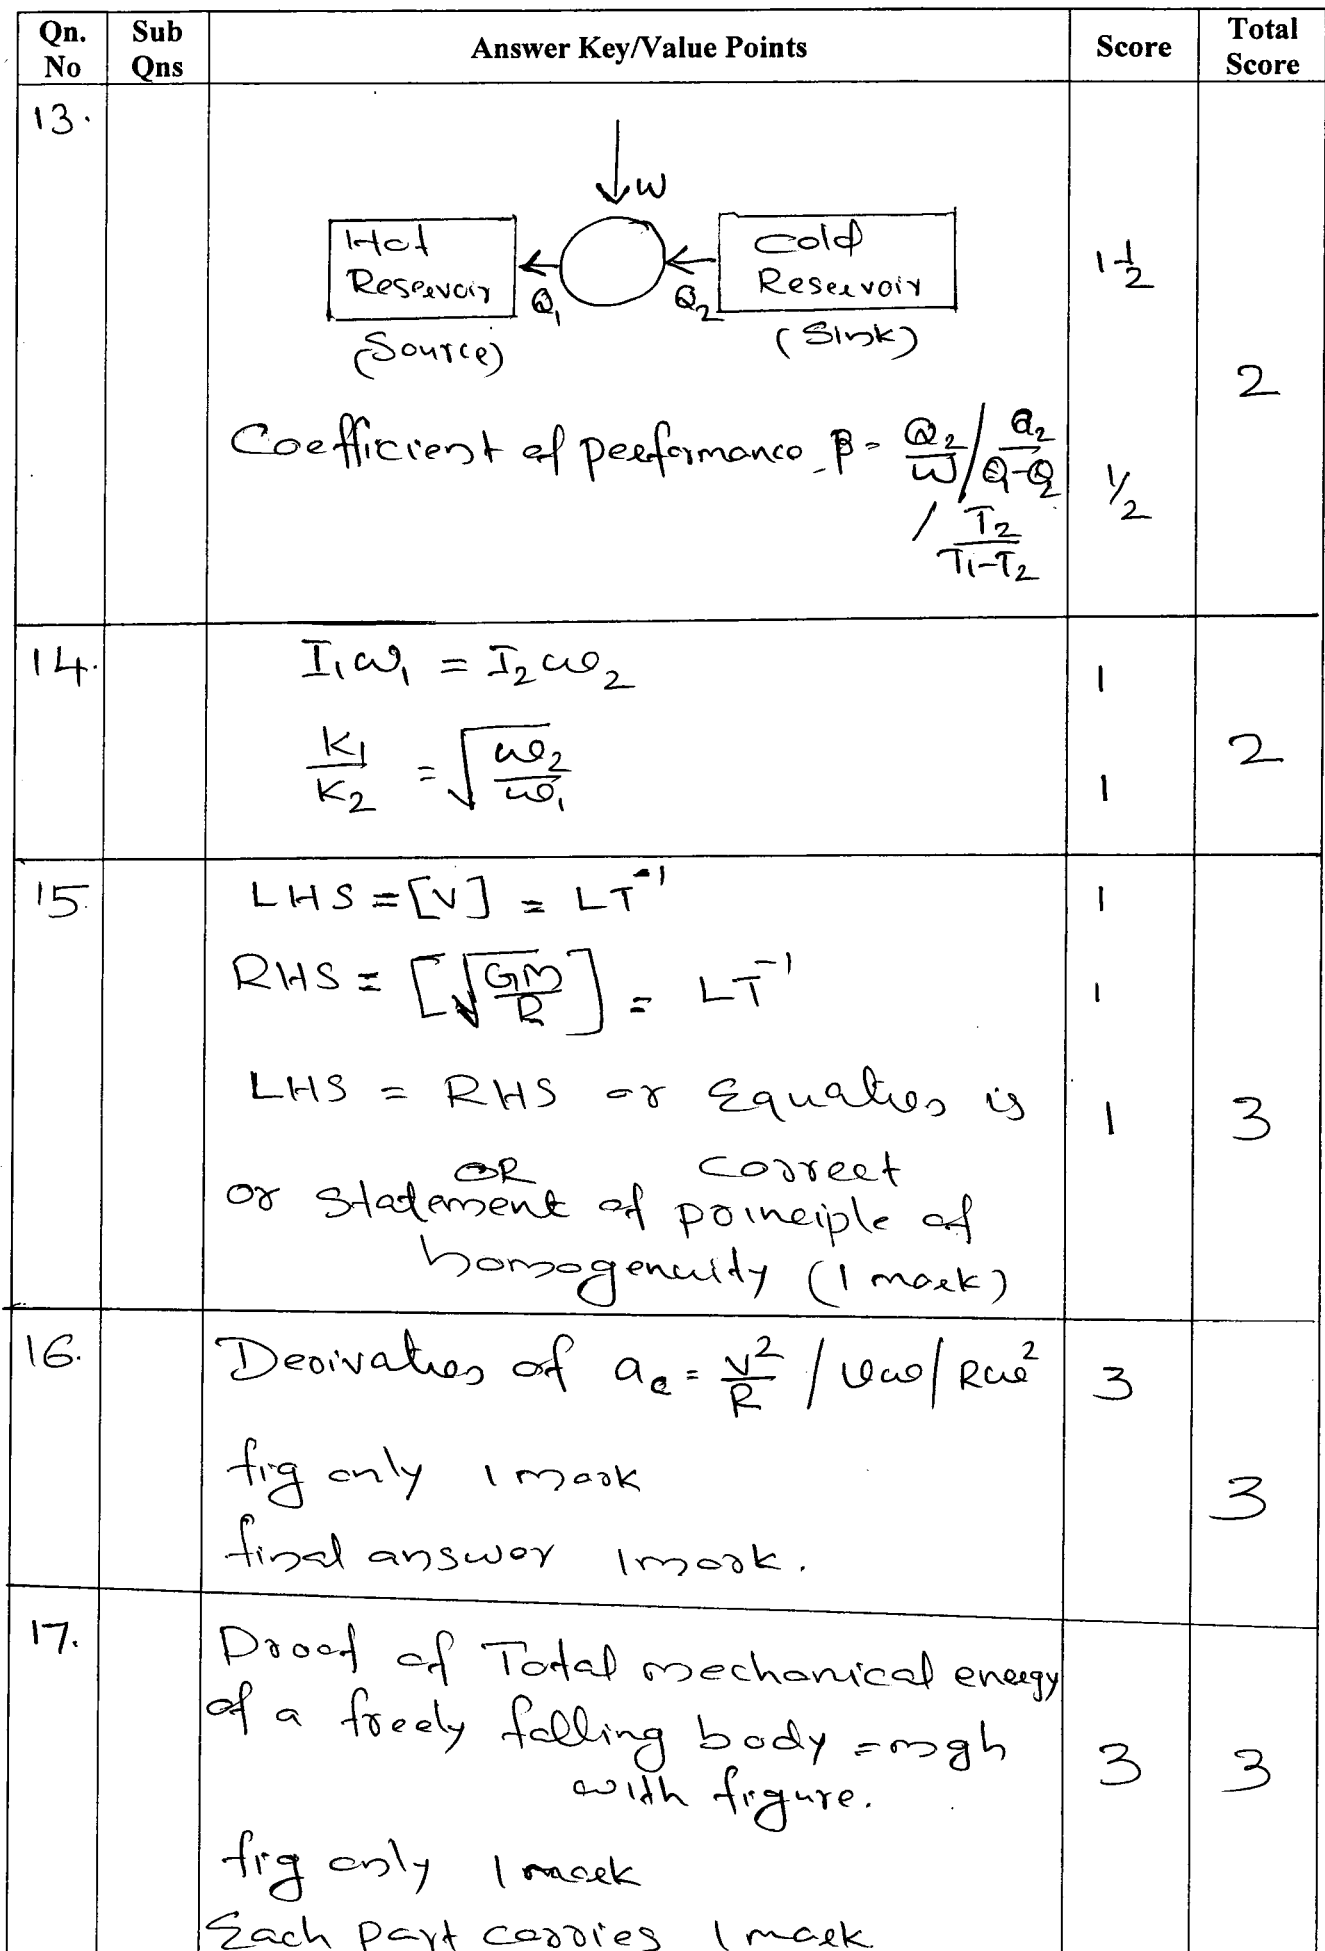 Qn. No Sub Qns Answer Key/Value Points Score Total Score
13.
W
Hot Reservoir Q1 Q2 Cold Reservoir 1 1/2
(Source) (Sink)
2
Coefficient of performance β = Q2/W / Q2/(Q1-Q2) 1/2
/ T2/(T1-T2)
14. I1ω1 = I2ω2 1
K1/K2 = √(ω2/ω1) 1 2
15. LHS = [V] = LT⁻¹ 1
RHS = [√(GM/R)] = LT⁻¹ 1
LHS = RHS or Equation is correct 1 3
OR
or statement of principle of
homogenuity (1 mark)
16. Derivation of ac = v²/R / vω / Rω² 3
fig only 1 mark 3
final answer 1 mark.
17. Proof of Total mechanical energy
of a freely falling body = mgh 3 3
with figure.
fig only 1 mark
Each part carries 1 mark